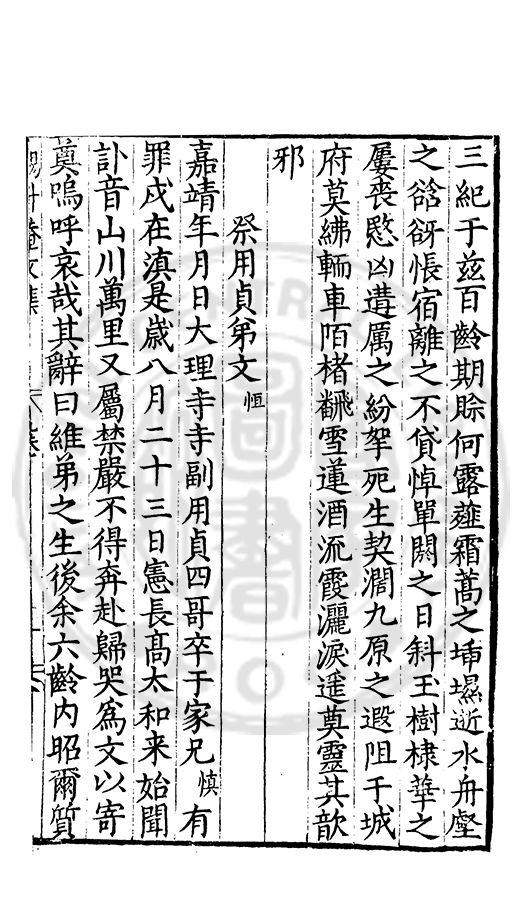 三紀于茲百齡期賒何露薤霜蒿之埽壒近水舟壑
之谽谺悵宿離之不貸悼單闕之日斜玉樹棣華之
屢喪愍凶遘厲之紛拏死生契濶九原之遐阻千城
府莫紼輀車陌楮飜雪蓮酒流霞灑淚遥奠靈其歆
邪
祭用貞弟文恒
嘉靖年月日大理寺寺副用貞四哥卒于家兄慎有
罪戍在滇是歲八月二十三日憲長高太和来始聞
訃音山川萬里又屬禁嚴不得奔赴歸哭爲文以寄
奠嗚呼哀哉其辭曰維弟之生後余六齡内昭爾質